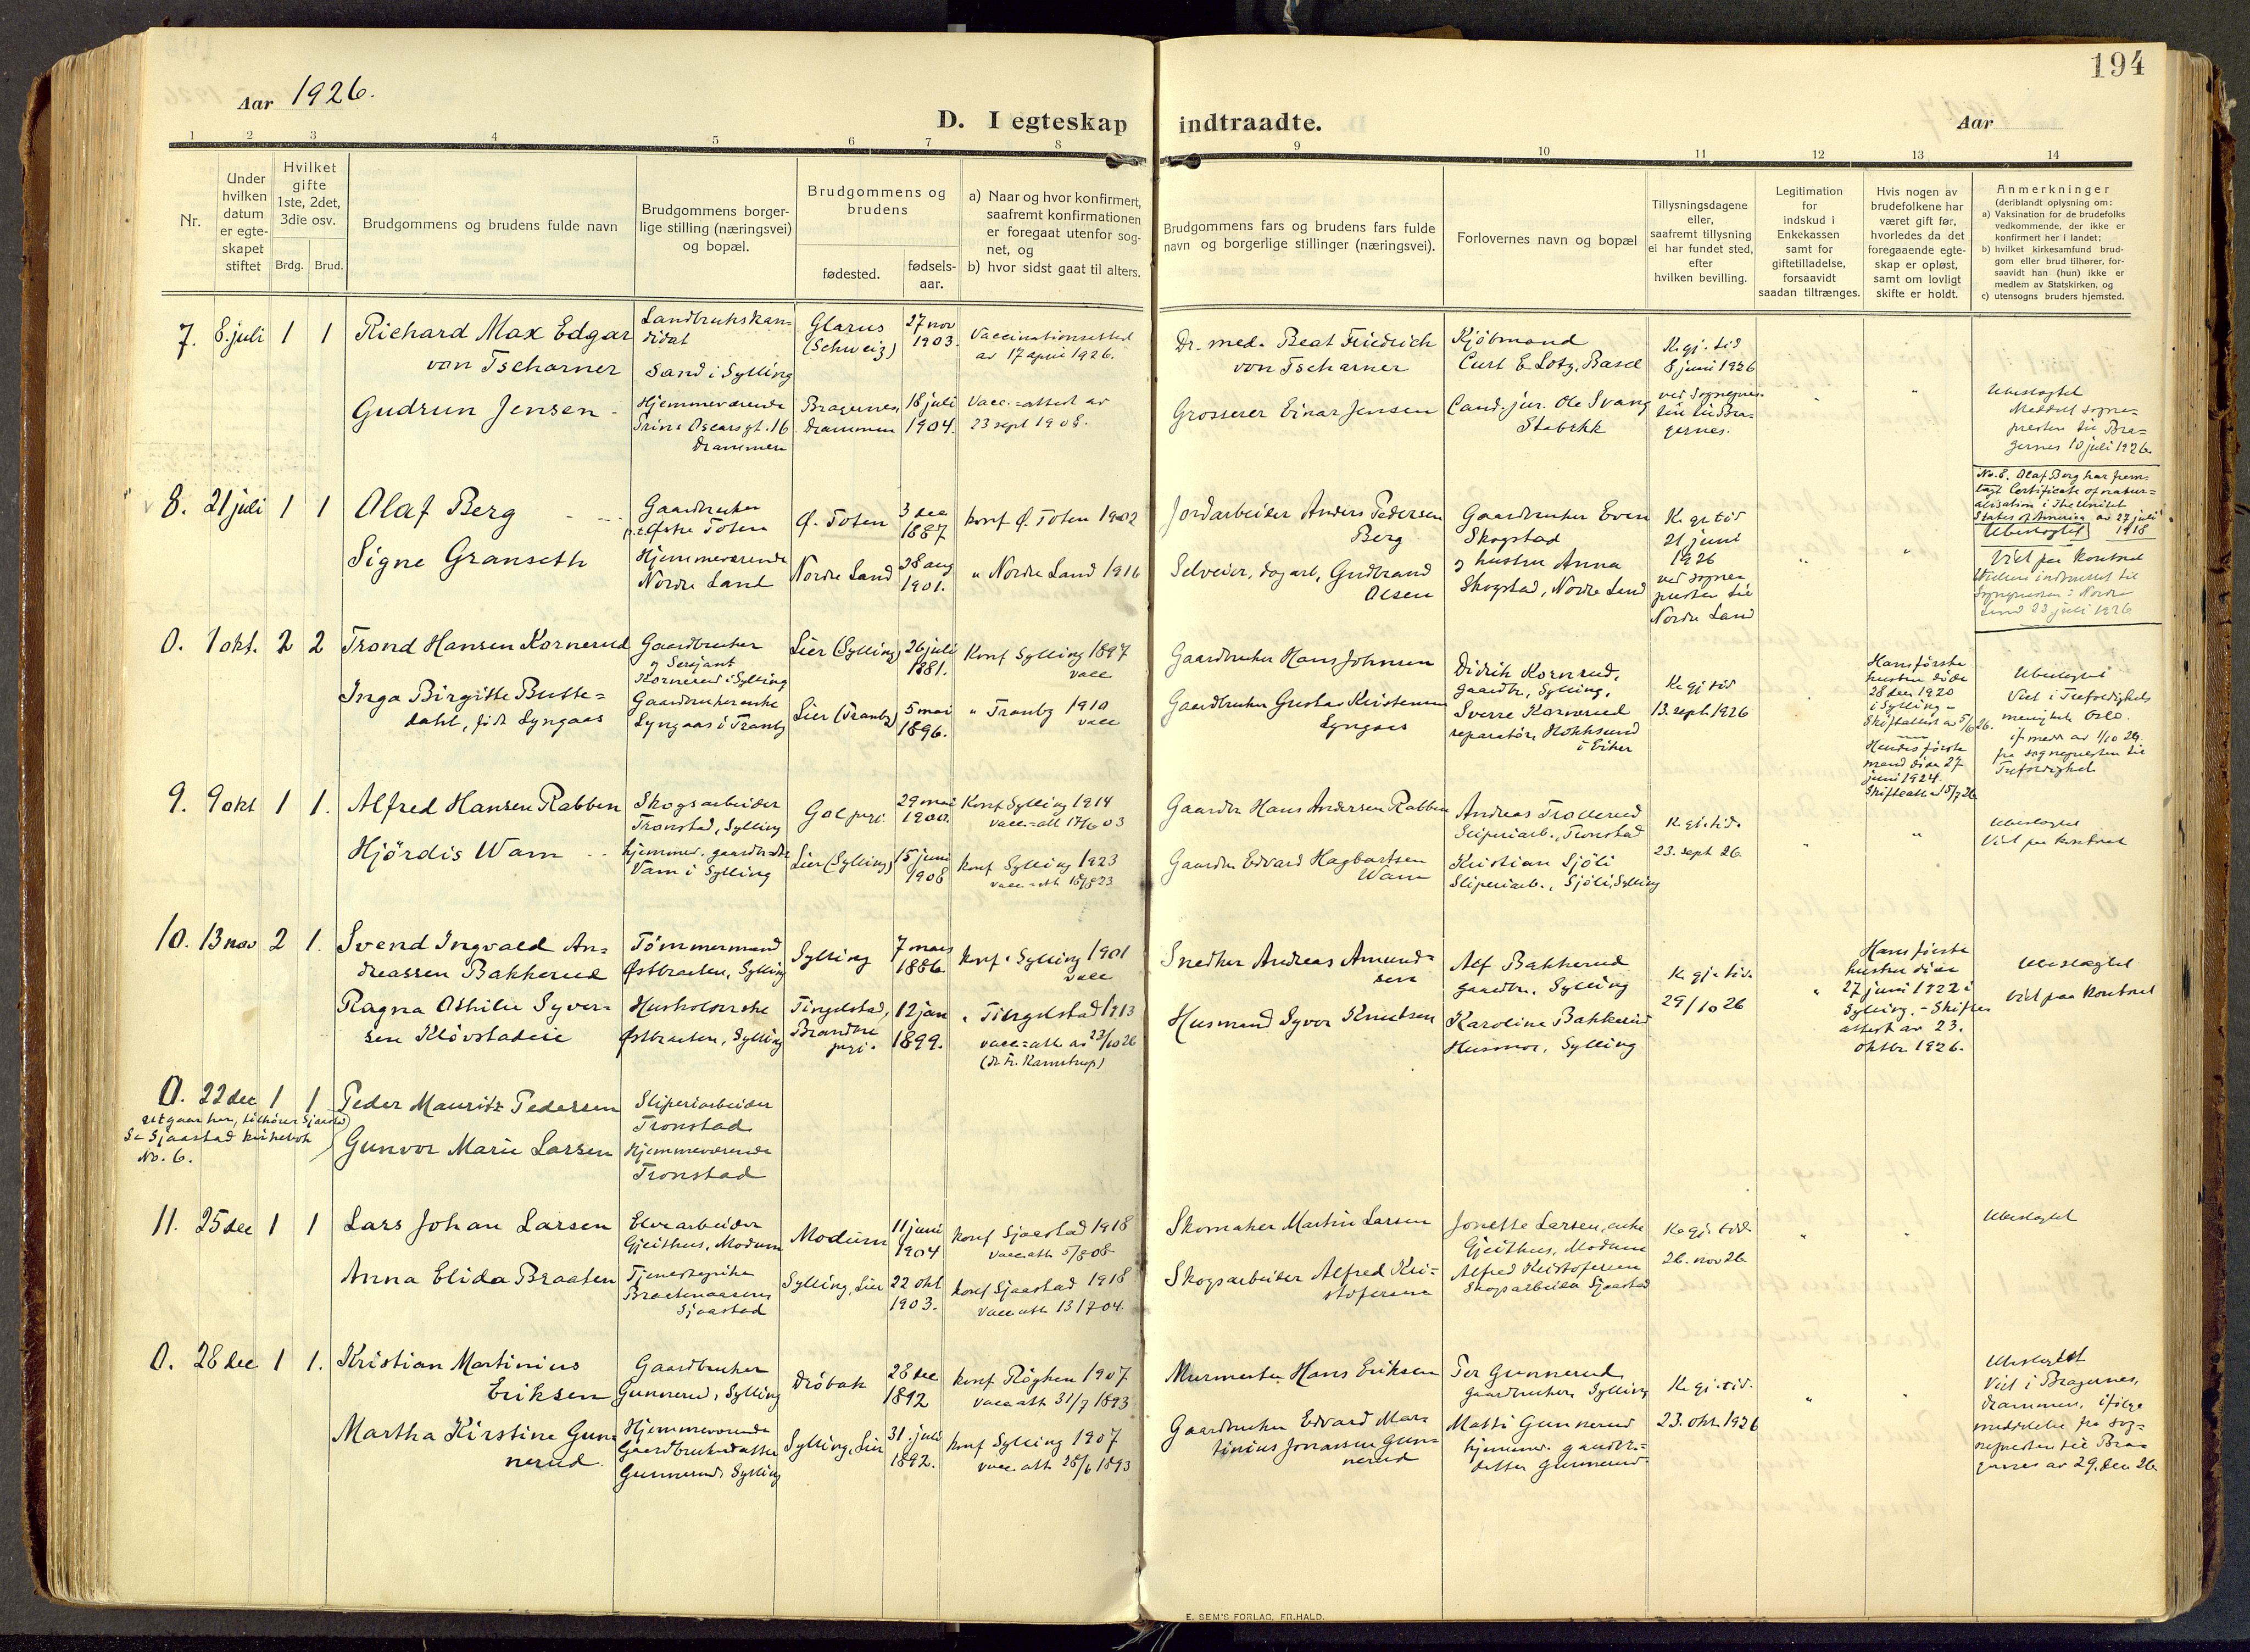 194
Aar 1926.
D. I egteskap indtraadte.
Aar
1 2 3 4 5 6 7 8 9 10 11 12 13 14
Nr.
Under
hvilken
datum
er egte-
skapet
stiftet
Hvilket
gifte
1ste, 2det,
3die osv.
Brdg. Brud.
Brudgommens og brudens fulde navn
Brudgommens borger-
lige stilling (næringsvei)
og bopæl.
Brudgommens og
brudens
fødested.
fødsels-
aar.
a) Naar og hvor konfirmert,
saafremt konfirmationen
er foregaat utenfor sog-
net, og
b) hvor sidst gaat til alters.
Brudgommens fars og brudens fars fulde
navn og borgerlige stillinger (næringsvei).
Forlovernes navn og bopæl
Tillysningsdagene
eller,
saafremt tillysning
ei har fundet sted,
efter
hvilken bevilling.
Legitimation
for
indskud i
Enkekassen
samt for
giftetilladelse,
forsaavidt
saadan tiltrænges.
Hvis nogen av
brudefolkene har
været gift før,
hvorledes da det
foregaaende egte-
skap er opløst,
samt om lovligt
skifte er holdt.
Anmerkninger
(deriblandt oplysning om:
a) Vaksination for de brudefolks
vedkommende, der ikke er
konfirmert her i landet;
b) hvilket kirkesamfund brud-
gom eller brud tilhører, for-
saavidt han (hun) ikke er
medlem av Statskirken, og
c) utensogns bruders hjemsted.
7. 8. juli 1 1
Richard Max Edgar
von Tscharner
Gudrun Jensen
Landbrukskan-
didat
Sand i Sylling
Hjemmeværende
Prins Oscarsgt. 16
Drammen
Glarus
(Schweiz)
Bragernes,
Drammen
27 nov
1903.
18 juli
1904.
Vaccinationsattest
av 17 april 1926.
Vacc.=attest av
23 sept 1908.
Dr. med. Beat Friedrich
von Tscharner
Grosserer Einar Jensen
Kjøbmand
Curt E Lotz, Basel
Cand. jur. Ole Svang
Stabekk
K. gj. tid
8 juni 1926
ved sognepres-
ten til Bra-
gernes.
Ubeslegtet
Meddelt sogne-
presten til Bra-
gernes 10 juli 1926.
8. 21 juli 1 1
Olaf Berg
Signe Granseth
Gaardbruker
Østre Toten
Hjemmeværende
Nordre Land
Ø. Toten
Nordre Land
3 dec
1887
28 aug
1901.
konf Ø. Toten 1902
" Nordre Land 1916
Jordarbeider Anders Pedersen
Berg
Selveier, dagarb, Gudbrand
Olsen
Gaardbruker Even
Skogstad
og hustru Anna
Skogstad, Nordre Land
K gj tid
21 juni
1926
ved sogne-
presten til
Nordre Land
No. 8. Olaf Berg har frem-
lagt Certificate of natur-
alisation i the United
States of America av 27 juli
1918
Ubeslegtet
Viet paa kontoret
0. 1 okt. 2 2
Trond Hansen Kornerud
Inga Birgitte Butte-
dahl, født Lyngaas
Gaardbruker
og Sersjant
Kornerud i Sylling
Gaardbrukerenke
Lyngaas i Tranby
Lier (Sylling)
Lier (Tranby)
26 juli
1881.
5 mai
1896.
Konf Sylling 1897
vacc
" Tranby 1910
vacc
Gaardbruker Hans Johnsen
Gaardbruker Gustav Kristensen
Lyngaas
Didrik Kornrud,
gaardbr, Sylling,
Sverre Kornerud
reparatør, Hokksund
i Eiker
K gj tid
13. sept. 1926
Hans første
hustru døde
28 dec 1920
i Sylling -
Skifteattest av 5/6 26.
Hendes første
mand døde 27
juni 1924.
Ubeslegtet
Viet i Trefoldighets
menighet Oslo.
if. medd av 1/10 26.
fra sognepresten til
Trefoldighet
9. 9 okt 1 1.
Alfred Hansen Rabben
Hjördis Wam
Skogsarbeider
Tronstad, Sylling
hjemmev. gaardbr.datter
Vam i Sylling
Gol prgj.
Lier (Sylling)
29 mai
1900.
15 juni
1908
Konf Sylling 1914
vacc.=att 17/6 03
konf Sylling 1923
vacc=att 18/8 23
Gaardbr Hans Andersen Rabben
Gaardbr Edvard Hagbartsen
Wam
Andreas Trollerud
Sliperiarb., Tronstad
Kristian Sjöli
Sliperiarb., Sjöli, Sylling
K. gj. tid.
23. sept 26.
Ubeslegtet
Viet paa kontoret
10. 13 nov 2 1.
Svend Ingvald An-
dreassen Bakkerud
Ragna Othilie Syver-
sen Klövstadeie
Tömmermand
Østbraaten, Sylling
Husholderske
Østbraaten, Sylling
Sylling
Tingelstad,
Brandbu
prgj.
7 mars
1886.
12 jan
1899.
konf. Sylling 1901
vacc
" Tingelstad 1913
vacc=att av 23/10 26
(dr Fr. Ramstrup)
Snedker Andreas Amund-
sen
Husmand Syver Knudsen
Alf Bakkerud
gaardbr. Sylling
Karoline Bakkerud
Husmor, Sylling
K gj. tid.
29/10 26
Hans første
hustru døde
27 juni 1922 i
Sylling. - Skifte-
attest av 23.
oktbr 1926.
Ubeslægtet
Viet paa kontoret
0. 22 dec 1 1
utgaar her, tilhører Sjaastad
Se Sjaastad kirkebok
No. 6.
Peder Mauritz Pedersen
Gunvor Marie Larsen
Sliperiarbeider
Tronstad
Hjemmeværende
Tronstad
11. 25 dec 1 1
Lars Johan Larsen
Anna Elida Braaten
Elvearbeider
Gjeithus, Modum
Tjenestepike
Braatenaasen,
Sjaastad
Modum
Sylling, Lier
11 juni
1904
22 okt
1903.
konf Sjaastad 1918
vacc att 5/8 08
konf Sjaastad 1918
vacc att 13 1704
Skomaker Martin Larsen
Skogsarbeider Alfred Kri-
stofersen
Jonette Larsen, enke
Gjeithus, Modum
Alfred Kristofersen
Skogsarbeider Sjaastad
K. gj. tid.
26. nov 26.
Ubeslegtet
0. 28 dec 1 1.
Kristian Martinius
Eriksen
Martha Kirstine Gun-
nerud
Gaardbruker
Gunnerud, Sylling
Hjemmeværende
Gaardbrukerdatter
Gunnerud, Sylling
Dröbak
Sylling, Lier
28 dec
1892
31. juli
1892.
konf Röyken 1907
vacc att 31/7 1893
konf Sylling 1907
vacc att 28/6 1893
Murmester Hans Eriksen
Gaardbruker Edvard Mar-
tinius Jonassen Gun-
nerud
Per Gunnerud
gaardbruker, Sylling
Mathi Gunnerud
hjemmev. gaardbr.-
datter Gunnerud
K. gj. tid.
23. okt. 1926
Ubeslegtet
Viet i Bragernes,
Drammen, ifölge
meddelelse fra sog-
nepresten til Bra-
gernes av 29. dec 26.
E. SEM'S FORLAG, FR.HALD.